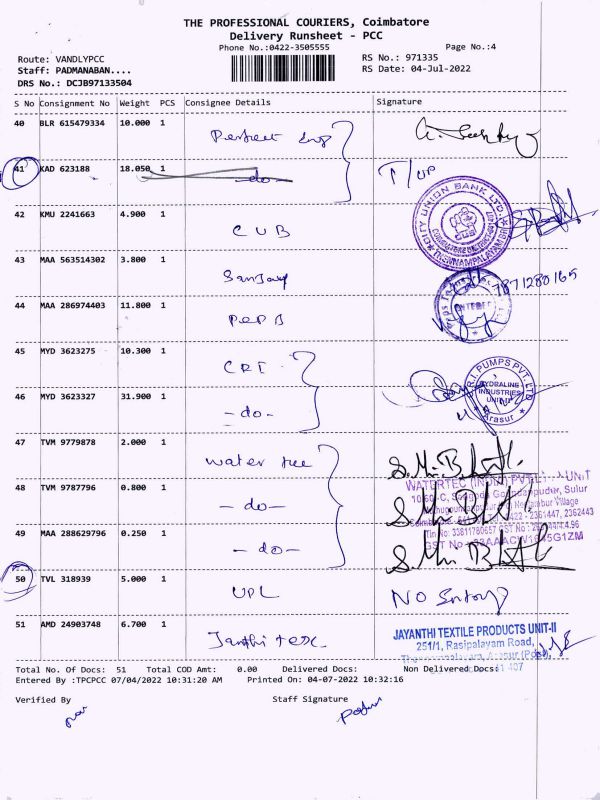 THE PROFESSIONAL COURIERS, Coimbatore
Delivery Runsheet - PCC
Phone No.:0422-3505555
Page No.:4
Route: VANDLYPCC
RS No.: 971335
Staff: PADMANABAN....
RS Date: 04-Jul-2022
DRS No.: DCJB97133504
S No Consignment No Weight PCS Consignee Details Signature
40 BLR 615479334 10.000 1
41 KAD 623188 18.050 1 -do- T/UP
42 KMU 2241663 4.900 1 CUB
CITY UNION BANK LTD
43 MAA 563514302 3.800 1 Sanjay
7871280165
44 MAA 286974403 11.800 1
45 MYD 3623275 10.300 1 CRI
PUMPS PVT. LTD
HYDRALINE
INDUSTRIES
UNIT II
Arasur
46 MYD 3623327 31.900 1 -do-
47 TVM 9779878 2.000 1 water tec
WATERTEC (INDIA) PVT LTD UNIT
48 TVM 9787796 0.800 1 -do-
49 MAA 288629796 0.250 1 -do-
50 TVL 318939 5.000 1 UPL NO Entry
51 AMD 24903748 6.700 1
JAYANTHI TEXTILE PRODUCTS UNIT-II
251/1, Rasipalayam Road,
Total No. Of Docs: 51 Total COD Amt: 0.00 Delivered Docs: Non Delivered Docs:
Entered By :TPCPCC 07/04/2022 10:31:20 AM Printed On: 04-07-2022 10:32:16
Verified By Staff Signature